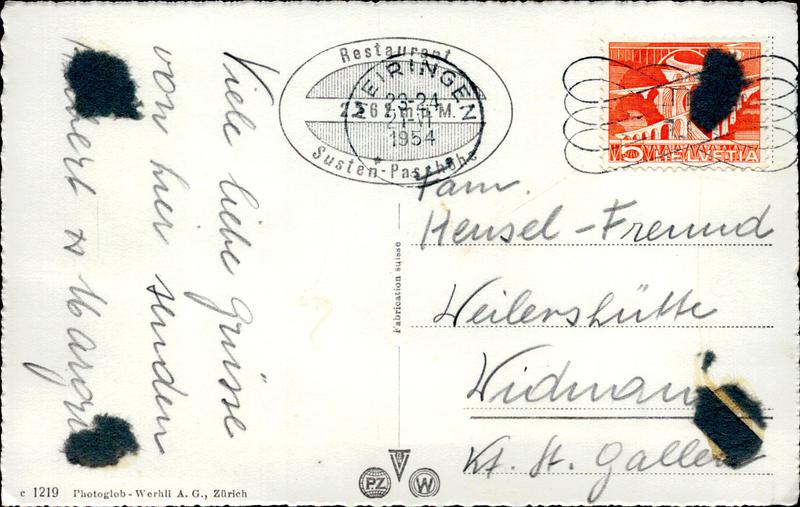 Viele liebe Grüsse
von hier senden
Restaurant
MEIRINGEN
23-24
2262 m.ü.M.
1954
Susten-Passhöhe
5 HELVETIA
Fam.
Hensel-Freund
Weilershütte
Widnau
Kt. St. Gallen
Fabrication suisse
PZ W
c 1219 Photoglob-Wehrli A. G., Zürich